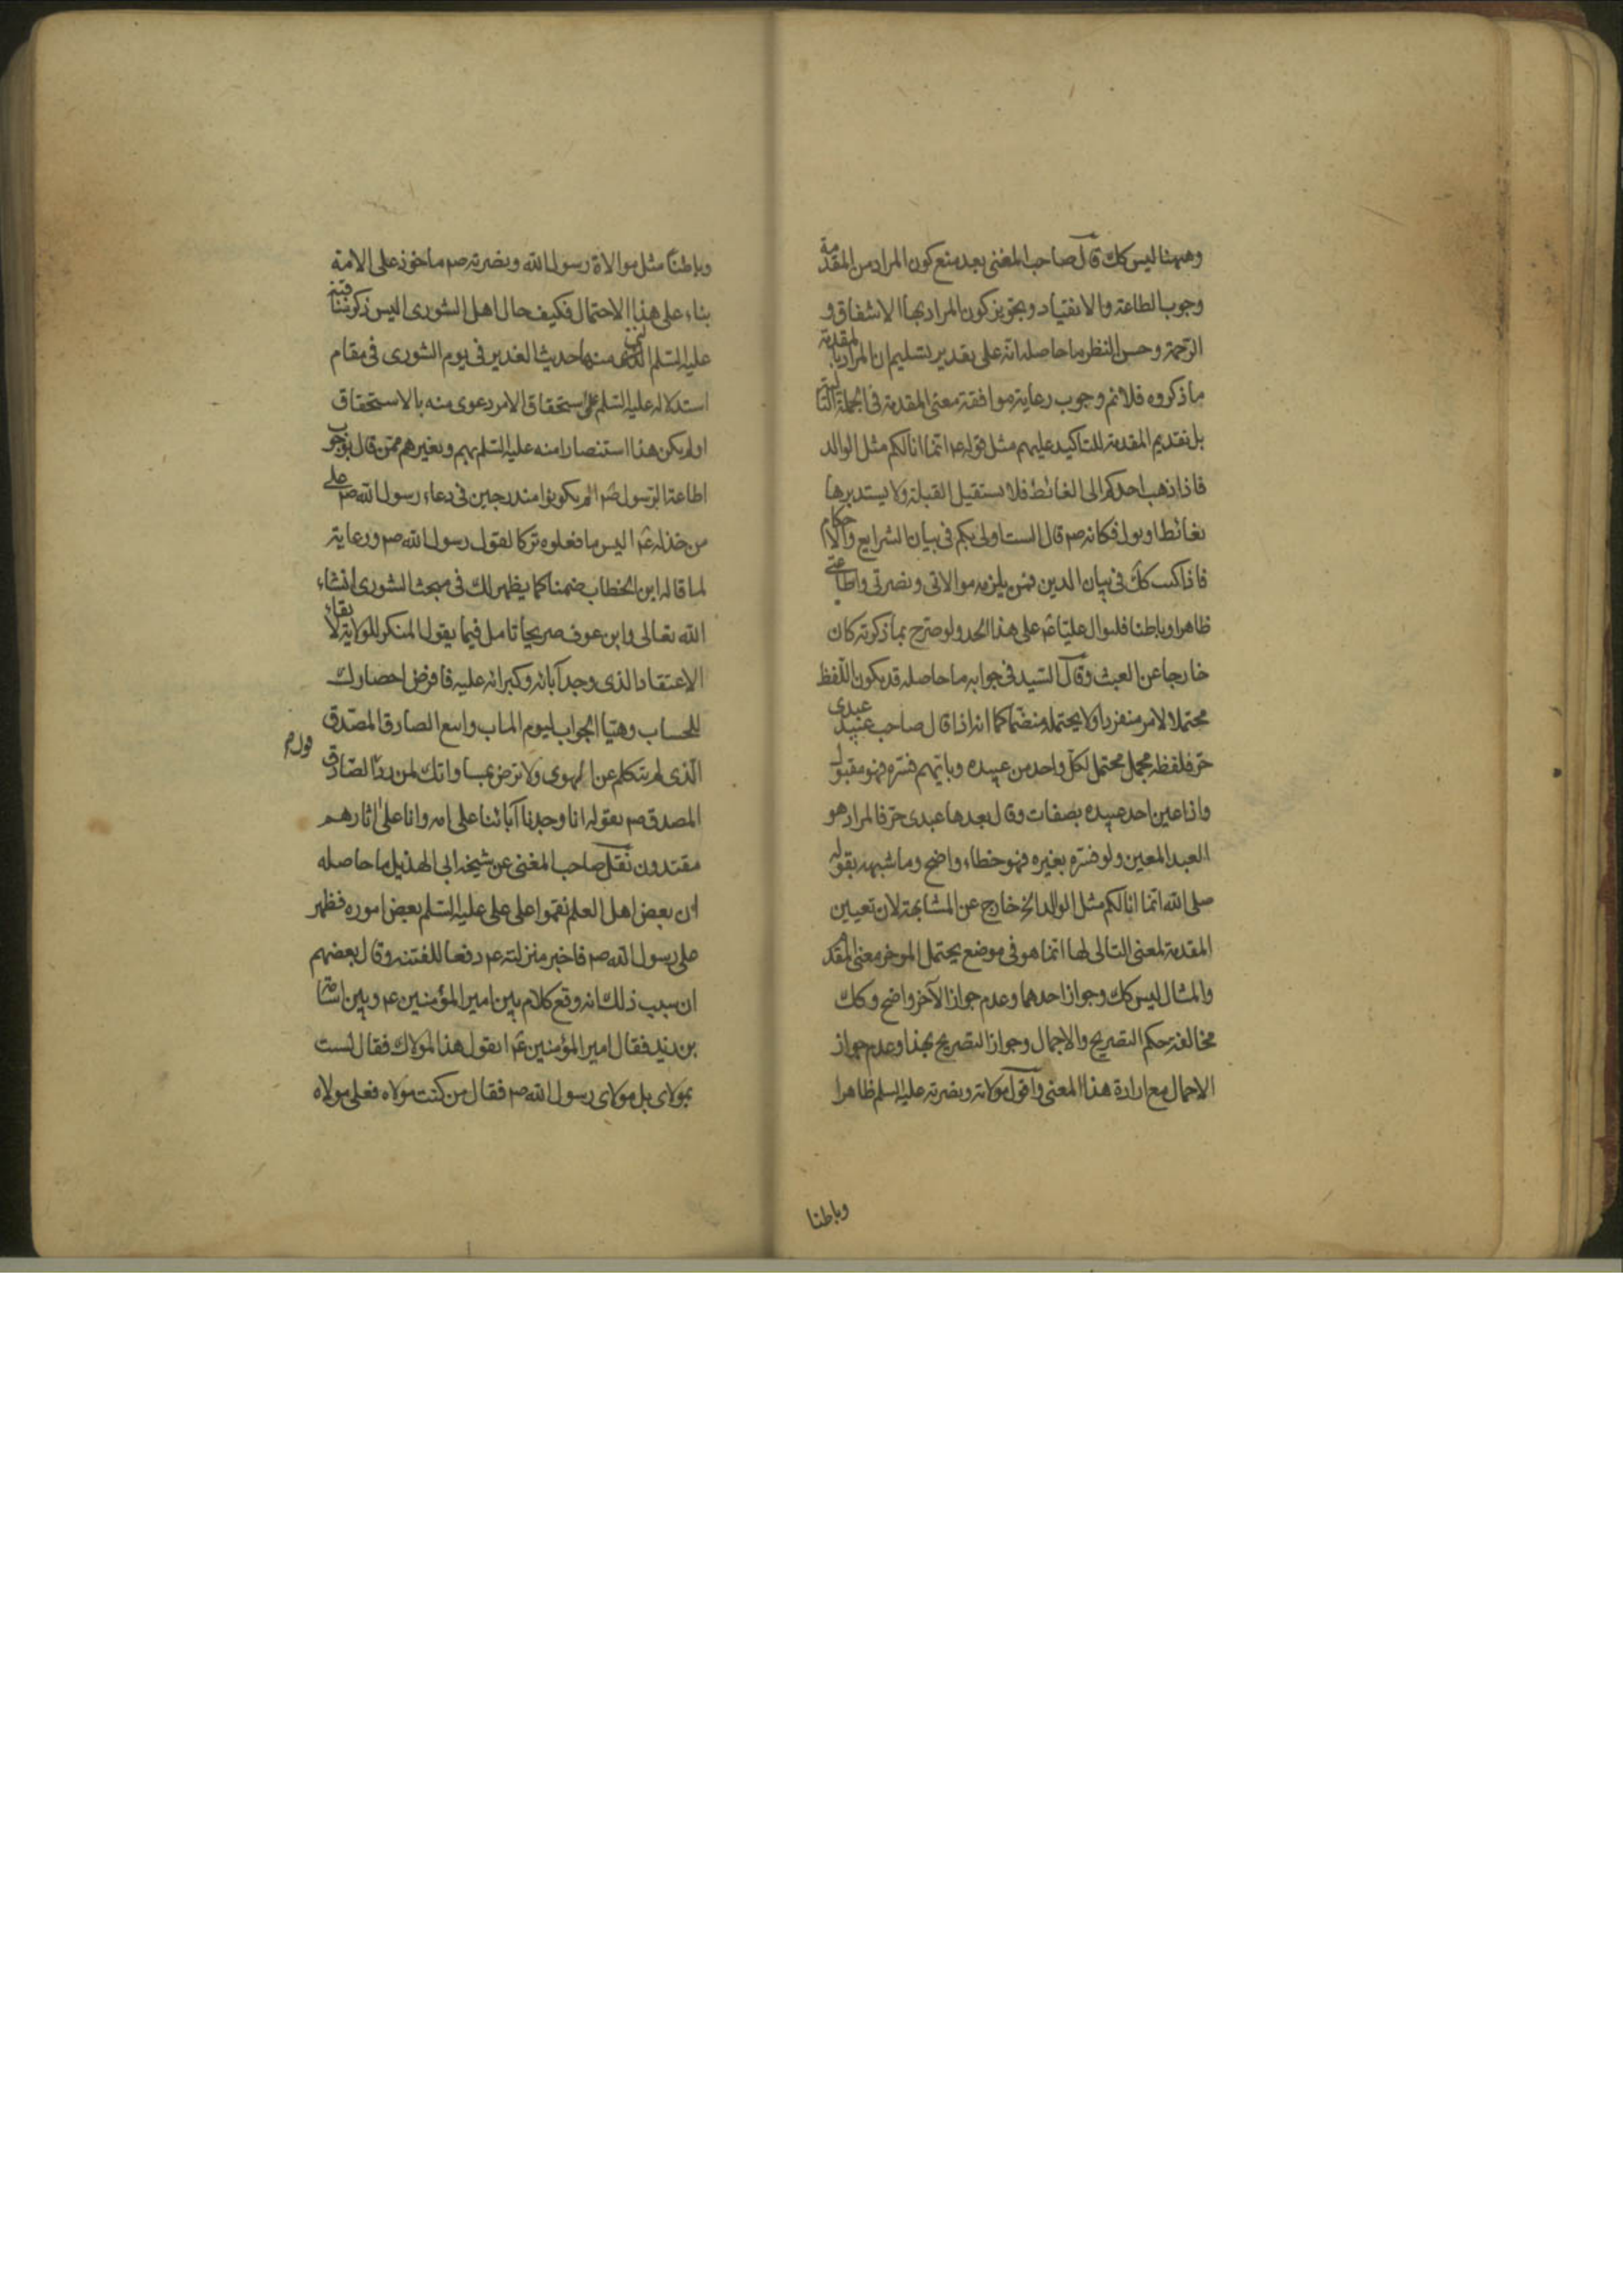 وههنا ليس كك قال صاحب المغنى بعد منع كون المراد من المقدمة
وجوب الطاعة والانقياد وتجويز كون المراد بها الاشفاق و
الرحمة وحسن النظر ما حاصله انه على تقدير تسليم ان المراد بالمقدمة
ما ذكروه فلانم وجوب رعاية موافقة معنى المقدمة فى الجملة التالية
بل تقديم المقدمة للتاكيد عليهم مثل قوله ع انما انا لكم مثل الوالد
فاذا ذهب احدكم الى الغائط فلا يستقبل القبلة ولا يستدبرها
بغائط او بول فكانه ص قال الست اولى بكم فى بيان الشرايع والاحكام
فاذا كنت كك فى بيان الدين فمن يلزمه موالاتى ونصرتى واطاعتى
ظاهرا وباطنا فليوال عليا ع على هذا الحد ولو صرح بما ذكرته كان
خارجا عن العبث وقال السيد فى جوابه ما حاصله قد يكون اللفظ
محتملا لامر منفردا ولا يحتمله منضما كما انه اذا قال صاحب عبيد عبدى
حر فلفظه مجمل محتمل لكل واحد من عبيده وبايهم فسره فهو مقبول
واذا عين احد عبيده بصفات وقال بعدها عبدى حر فالمراد هو
العبد المعين ولو فسره بغيره فهو خطاء واضح وما شبهه بقوله
صلى الله انما انا لكم مثل الوالد الخ خارج عن المشابهة لان تعيين
المقدمة لمعنى التالى لها انما هو فى موضع يحتمل الموخر معنى المقدم
والمثال ليس كك وجواز احدهما وعدم جواز الآخر واضح وكك
مخالفة حكم التصريح والاجمال وجواز التصريح بهذا وعدم جواز
الاجمال مع ارادة هذا المعنى واقول موالاته ونصرته عليه السلم ظاهرا
وباطنا
وباطنا مثل موالاة رسول الله ونصرته ص ماخوذ على الامة
بناء على هذا الاحتمال فكيف حال اهل الشورى اليس ذكر مناقبه
عليه السلم التى منها حديث الغدير فى يوم الشورى فى مقام
استدلاله عليه السلم على استحقاق الامر دعوى منه بالاستحقاق
اولم يكن هذا استنصارا منه عليه السلم بهم وبغيرهم ممن قال بوجوب
اطاعة الرسول ص الم يكونوا مندرجين فى دعاء رسول الله ص على
من خذله ع اليس ما فعلوه تركا لقول رسول الله ص ورعاية
لما قاله ابن الخطاب ضمنا كما يظهر لك فى مبحث الشورى انشاء
الله تعالى وابن عوف صريحا تامل فيما يقول المنكر للولاية لابقاء
الاعتقاد الذى وجد آبائه وكبرائه عليه فافرض احضارك
للحساب وهيّا الجواب ليوم الماب واسع الصادق المصدق
الذى لم يتكلم عن الهوى ولا ترض بمساواتك لمن رد الصادق
المصدق ص بقوله انا وجدنا آبائنا على امه وانا على اثارهم
مقتدون نقل صاحب المغنى عن شيخه ابى الهذيل ما حاصله
ان بعض اهل العلم نقموا على على عليه السلم بعض اموره فظهر
على رسول الله ص فاخبر منزلته ع دفعا للفتنه وقال بعضهم
ان سبب ذلك انه وقع كلام بين امير المؤمنين ع وبين اسامة
بن زيد فقال امير المؤمنين ع اتقول هذا لمولاك فقال لست
بمولاى بل مولاى رسول الله ص فقال من كنت مولاه فعلى مولاه